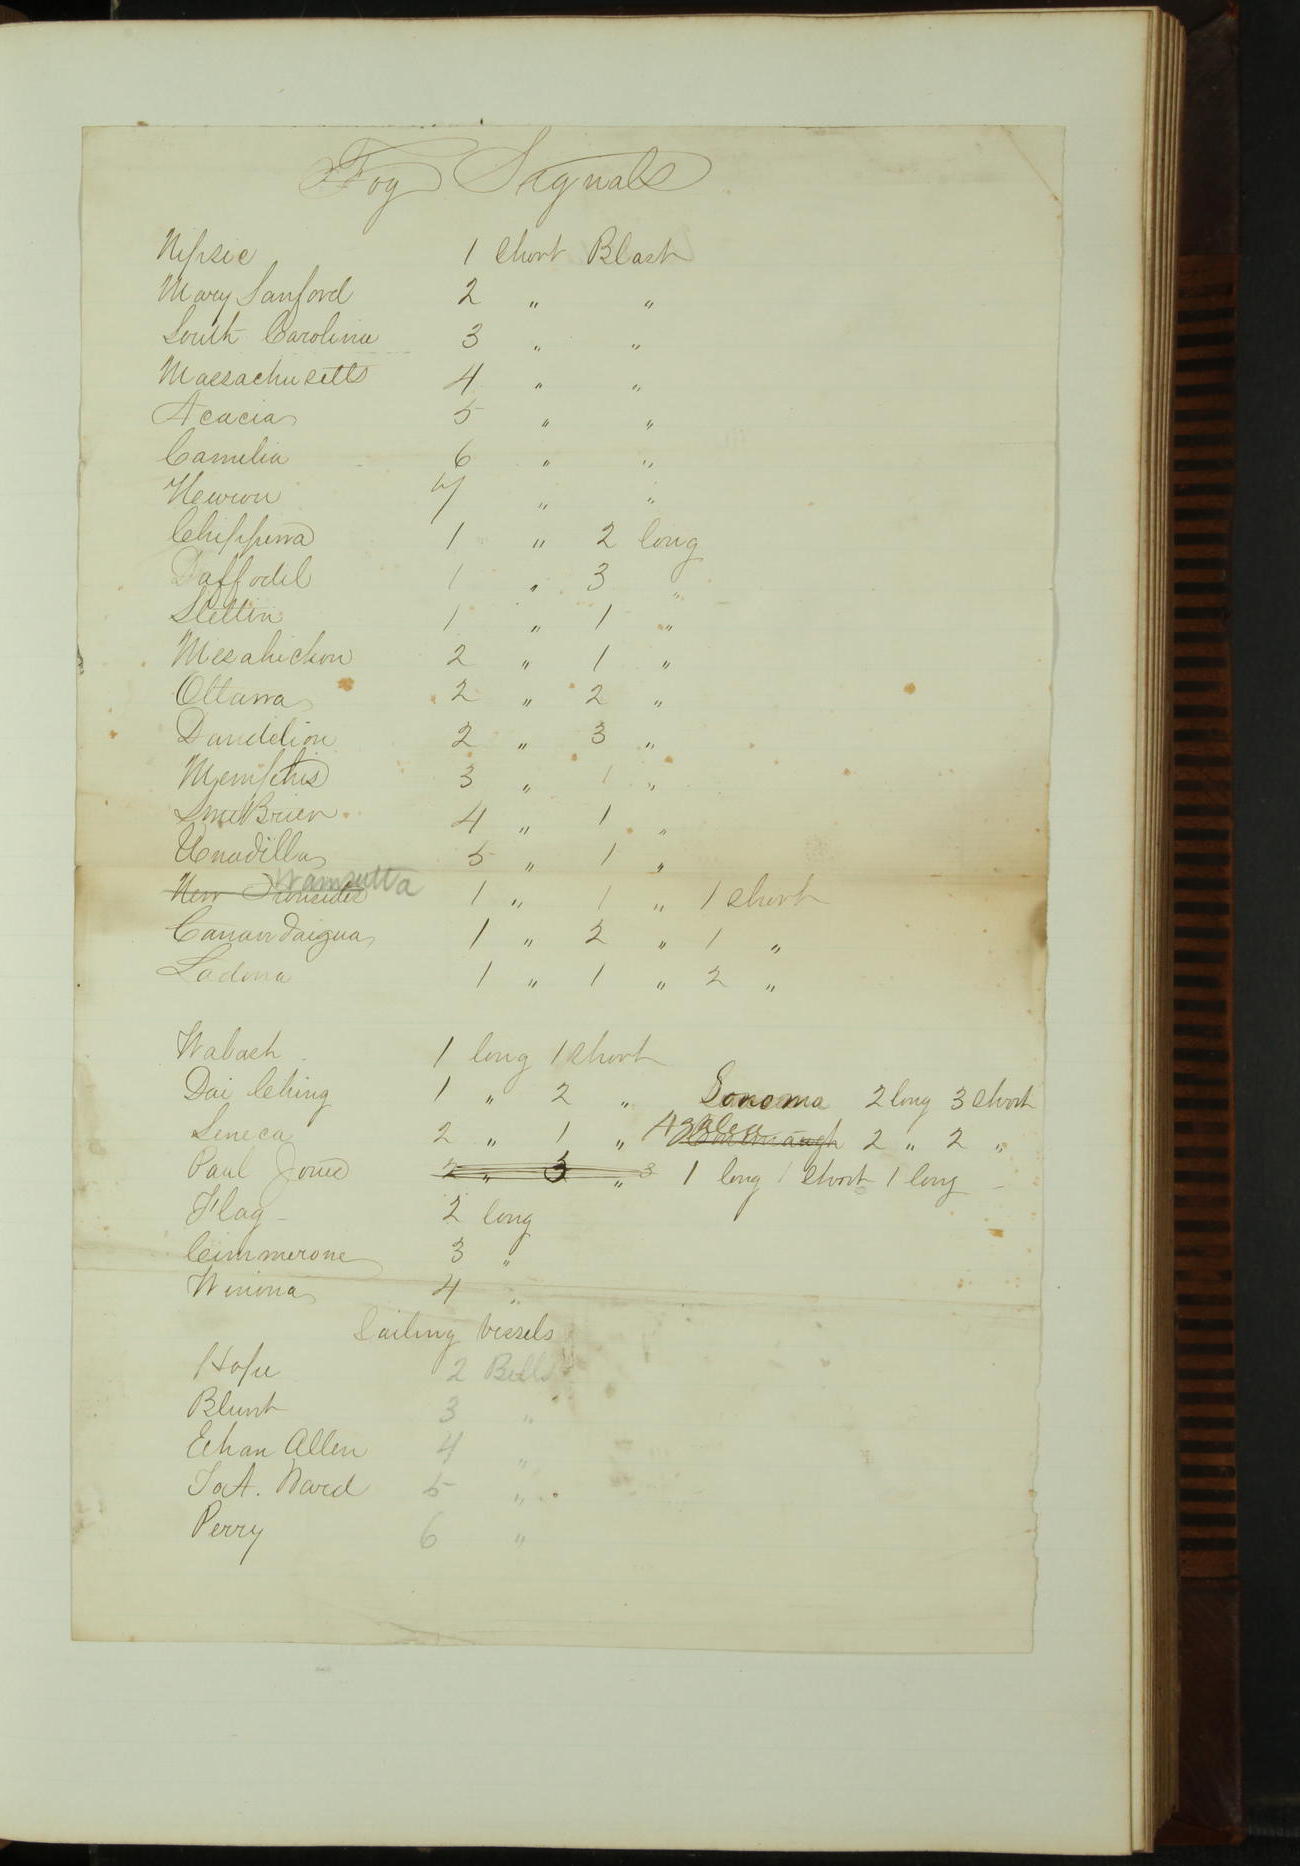 Fog Signals
Nipsic 1 Short Blast
Mary Sanford 2 " "
South Carolina 3 " "
Massachusetts 4 " "
Acacia 5 " "
Camelia 6 " "
Hewron 7 " "
Chippewa 1 " 2 long
Daffodil 1 " 3 "
Stettin 1 " 1 "
Mesahickon 2 " 1 "
Ottawa 2 " 2 "
Dandelion 2 " 3 "
Memphis 3 " 1 "
4 " 1 "
Unadilla 5 " 1 "
Wamsutta
New Ironsides 1 " 1 " 1 Short
Canandaigua 1 " 2 " 1 "
Ladona 1 " 1 " 2 "
Wabash 1 long 1 Short
Dai Ching 1 " 2 " Sonoma 2 long 3 Short
Seneca 2 " 1 " Azalea 2 " 2 "
Paul Jones 2 " 3 " 3 1 long 1 Short 1 long
Flag 2 long
Cimmerone 3 "
Winona 4 "
Sailing Vessels
Hope 2 Bells
Blunt 3 "
Ethan Allen 4 "
Ward 5 "
Perry 6 "